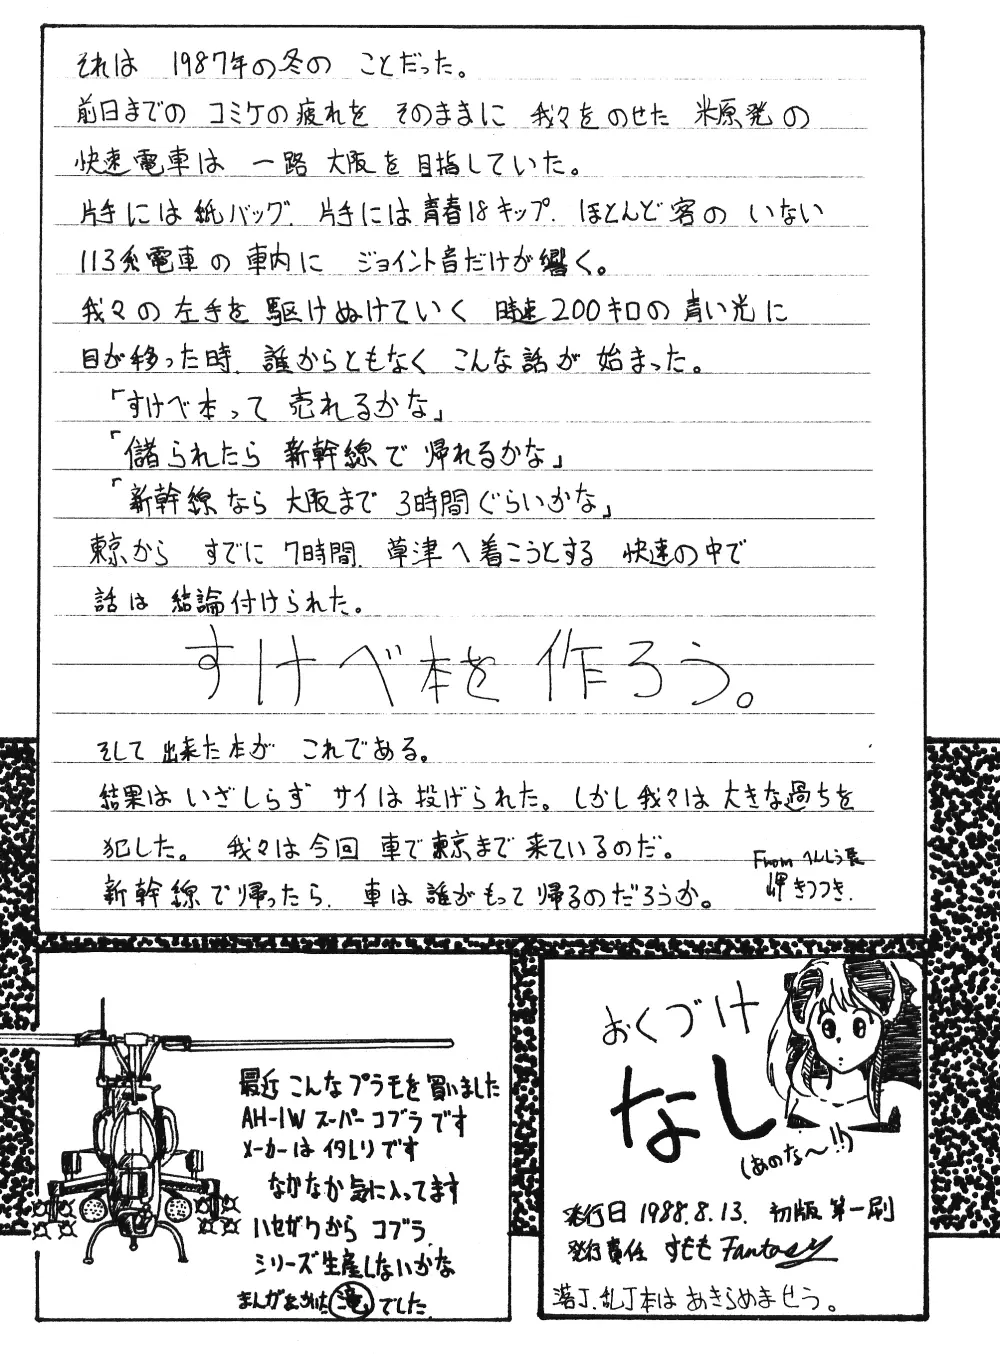 それは 1987年の冬の ことだった。
前日までの コミケの疲れを そのままに 我々をのせた 米原発の
快速電車は 一路 大阪を目指していた。
片手には紙バッグ、片手には青春18キップ、ほとんど客の いない
113系電車の 車内に ジョイント音だけが響く。
我々の左手を 駆けぬけていく 時速200キロの青い光に
目が移った時、誰からともなく こんな話が 始まった。
「すけべ本って 売れるかな」
「儲られたら 新幹線で 帰れるかな」
「新幹線なら 大阪まで 3時間ぐらいかな」
東京から すでに 7時間、草津へ着こうとする 快速の中で
話は 結論付けられた。
すけべ本を 作ろう。
そして 出来た本が これである。
結果は いざしらず サイは投げられた。しかし我々は 大きな過ちを
犯した。 我々は今回 車で東京まで来ているのだ。
新幹線で帰ったら、車は誰がもって帰るのだろうか。
From へんしう長
岬きつつき.
最近 こんなプラモを買いました
AH-1W スーパーコブラです
メーカーはイタレリです
なかなか気に入ってます
ハセガワから コブラ
シリーズ生産しないかな
まんがをかいた 滝 でした.
おくづけ
なし
(あのな〜!!)
発行日 1988.8.13. 初版 第一刷
発行責任 すもも Fantasy
落丁、乱丁本は あきらめませう。